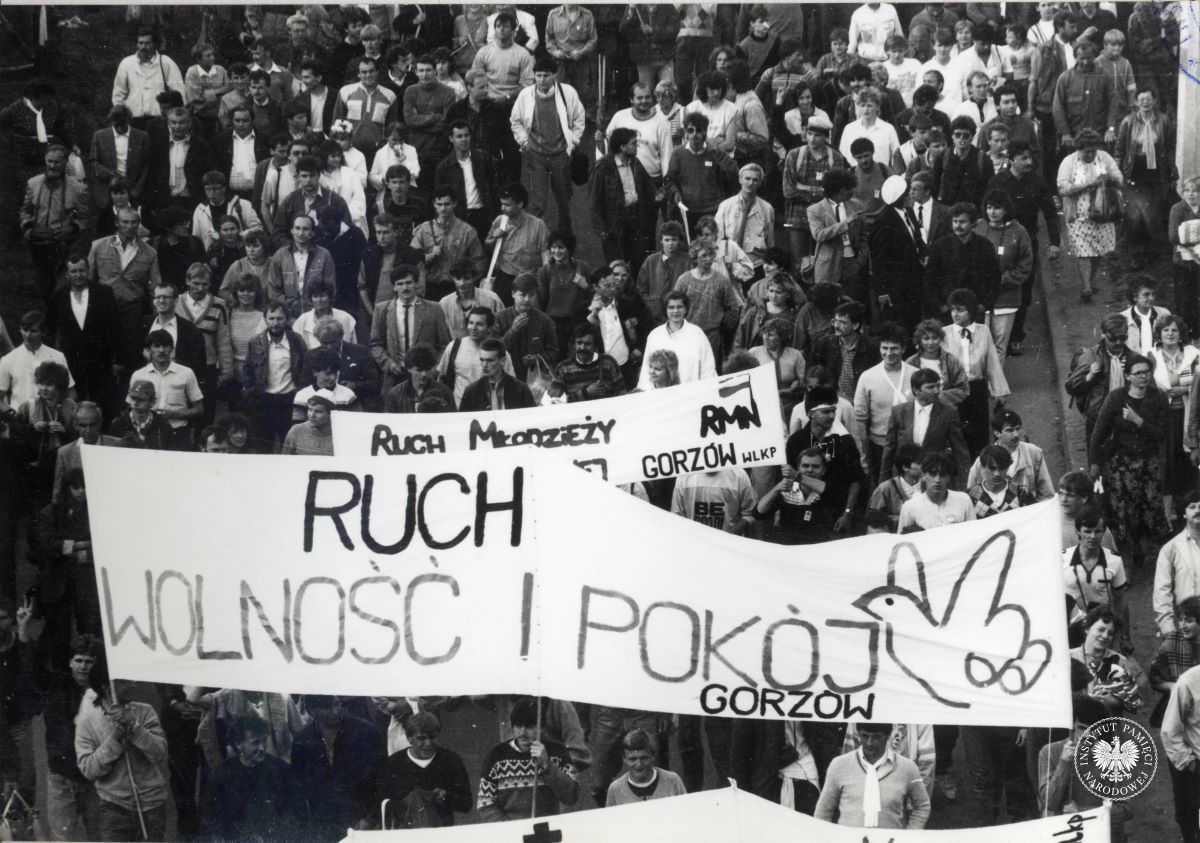 RUCH MŁODZIEŻY
RMN
GORZÓW WLKP
RUCH
WOLNOŚĆ I POKÓJ
GORZÓW
BE
WLKP
INSTYTUT PAMIĘCI NARODOWEJ